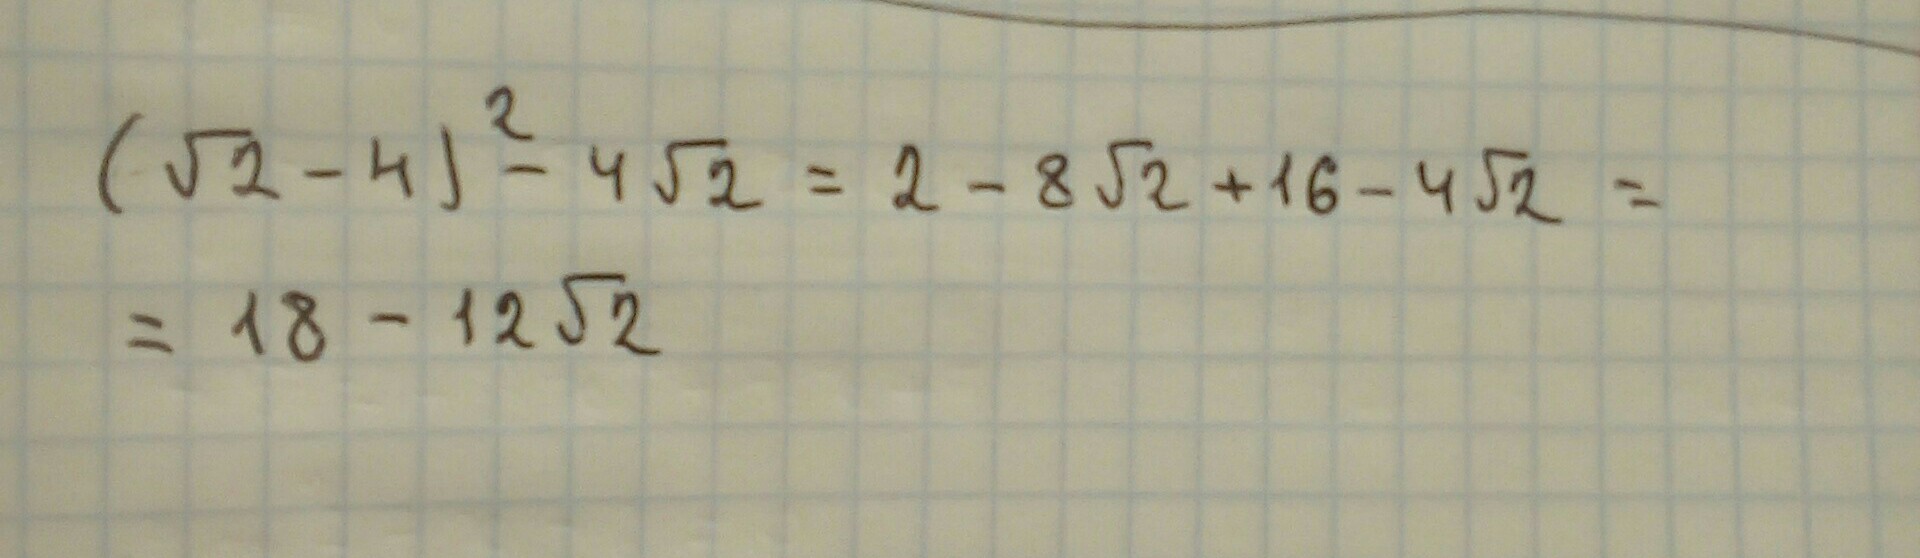 (√2 - 4)² - 4√2 = 2 - 8√2 + 16 - 4√2 =
= 18 - 12√2